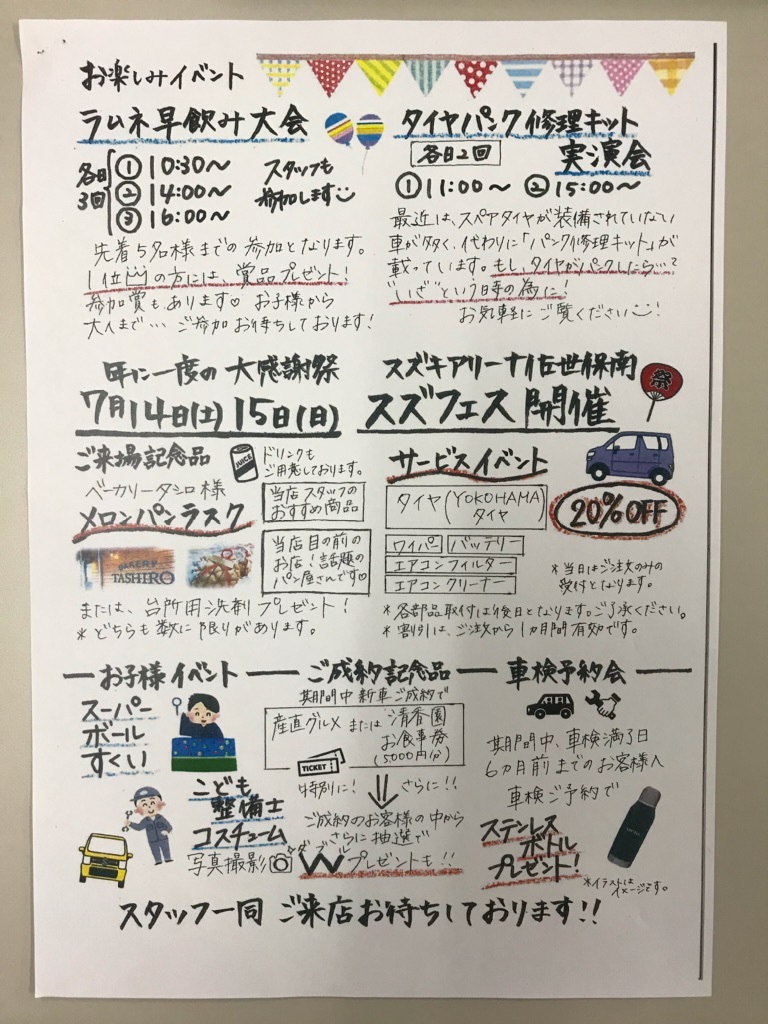 お楽しみイベント
ラムネ早飲み大会
各日3回
①10:30～
②14:00～
③16:00～
スタッフも
参加します
先着5名様までの参加となります。
1位の方には、賞品プレゼント!
参加賞もあります♡ お子様から
大人まで… ご参加お待ちしております!
タイヤパンク修理キット
実演会
各日2回
①11:00～ ②15:00～
最近は、スペアタイヤが装備されていない
車が多く、代わりに「パンク修理キット」が
載っています。もし、タイヤがパンクしたら…で
"いざ"という時の為に!
お気軽にご覧ください!
年に一度の大感謝祭
7月14日(土)15日(日)
スズキアリーナ佐世保南
スズフェス開催
祭
ご来場記念品
JUICE
ドリンクも
ご用意しております。
ベーカリータシロ様
メロンパンラスク
当店スタッフの
おすすめ商品
BAKERY
TASHIRO
当店目の前の
お店!話題の
パン屋さんです♡
または、台所用洗剤プレゼント!
*どちらも数に限りがあります。
サービスイベント
タイヤ(YOKOHAMA
タイヤ)
20%OFF
ワイパー
バッテリー
エアコンフィルター
エアコンクリーナー
*当日はご注文のみの
受付となります。
*各部品取付は後日となります。ご了承ください。
*割引は、ご注文から1ヵ月間有効です。
お子様イベント
スーパー
ボール
すくい
こども
整備士
コスチューム
写真撮影
ご成約記念品
期間中新車ご成約で
産直グルメ または 清香園
お食事券
(5,000円分)
TICKET
特別に! さらに!!
ご成約のお客様の中から
さらに抽選で
ダブル
Wプレゼントも!!
車検予約会
期間中、車検満了日
6ヵ月前までのお客様へ
車検ご予約で
ステンレス
ボトル
プレゼント!
*イラストは
イメージです。
スタッフ一同 ご来店お待ちしております!!